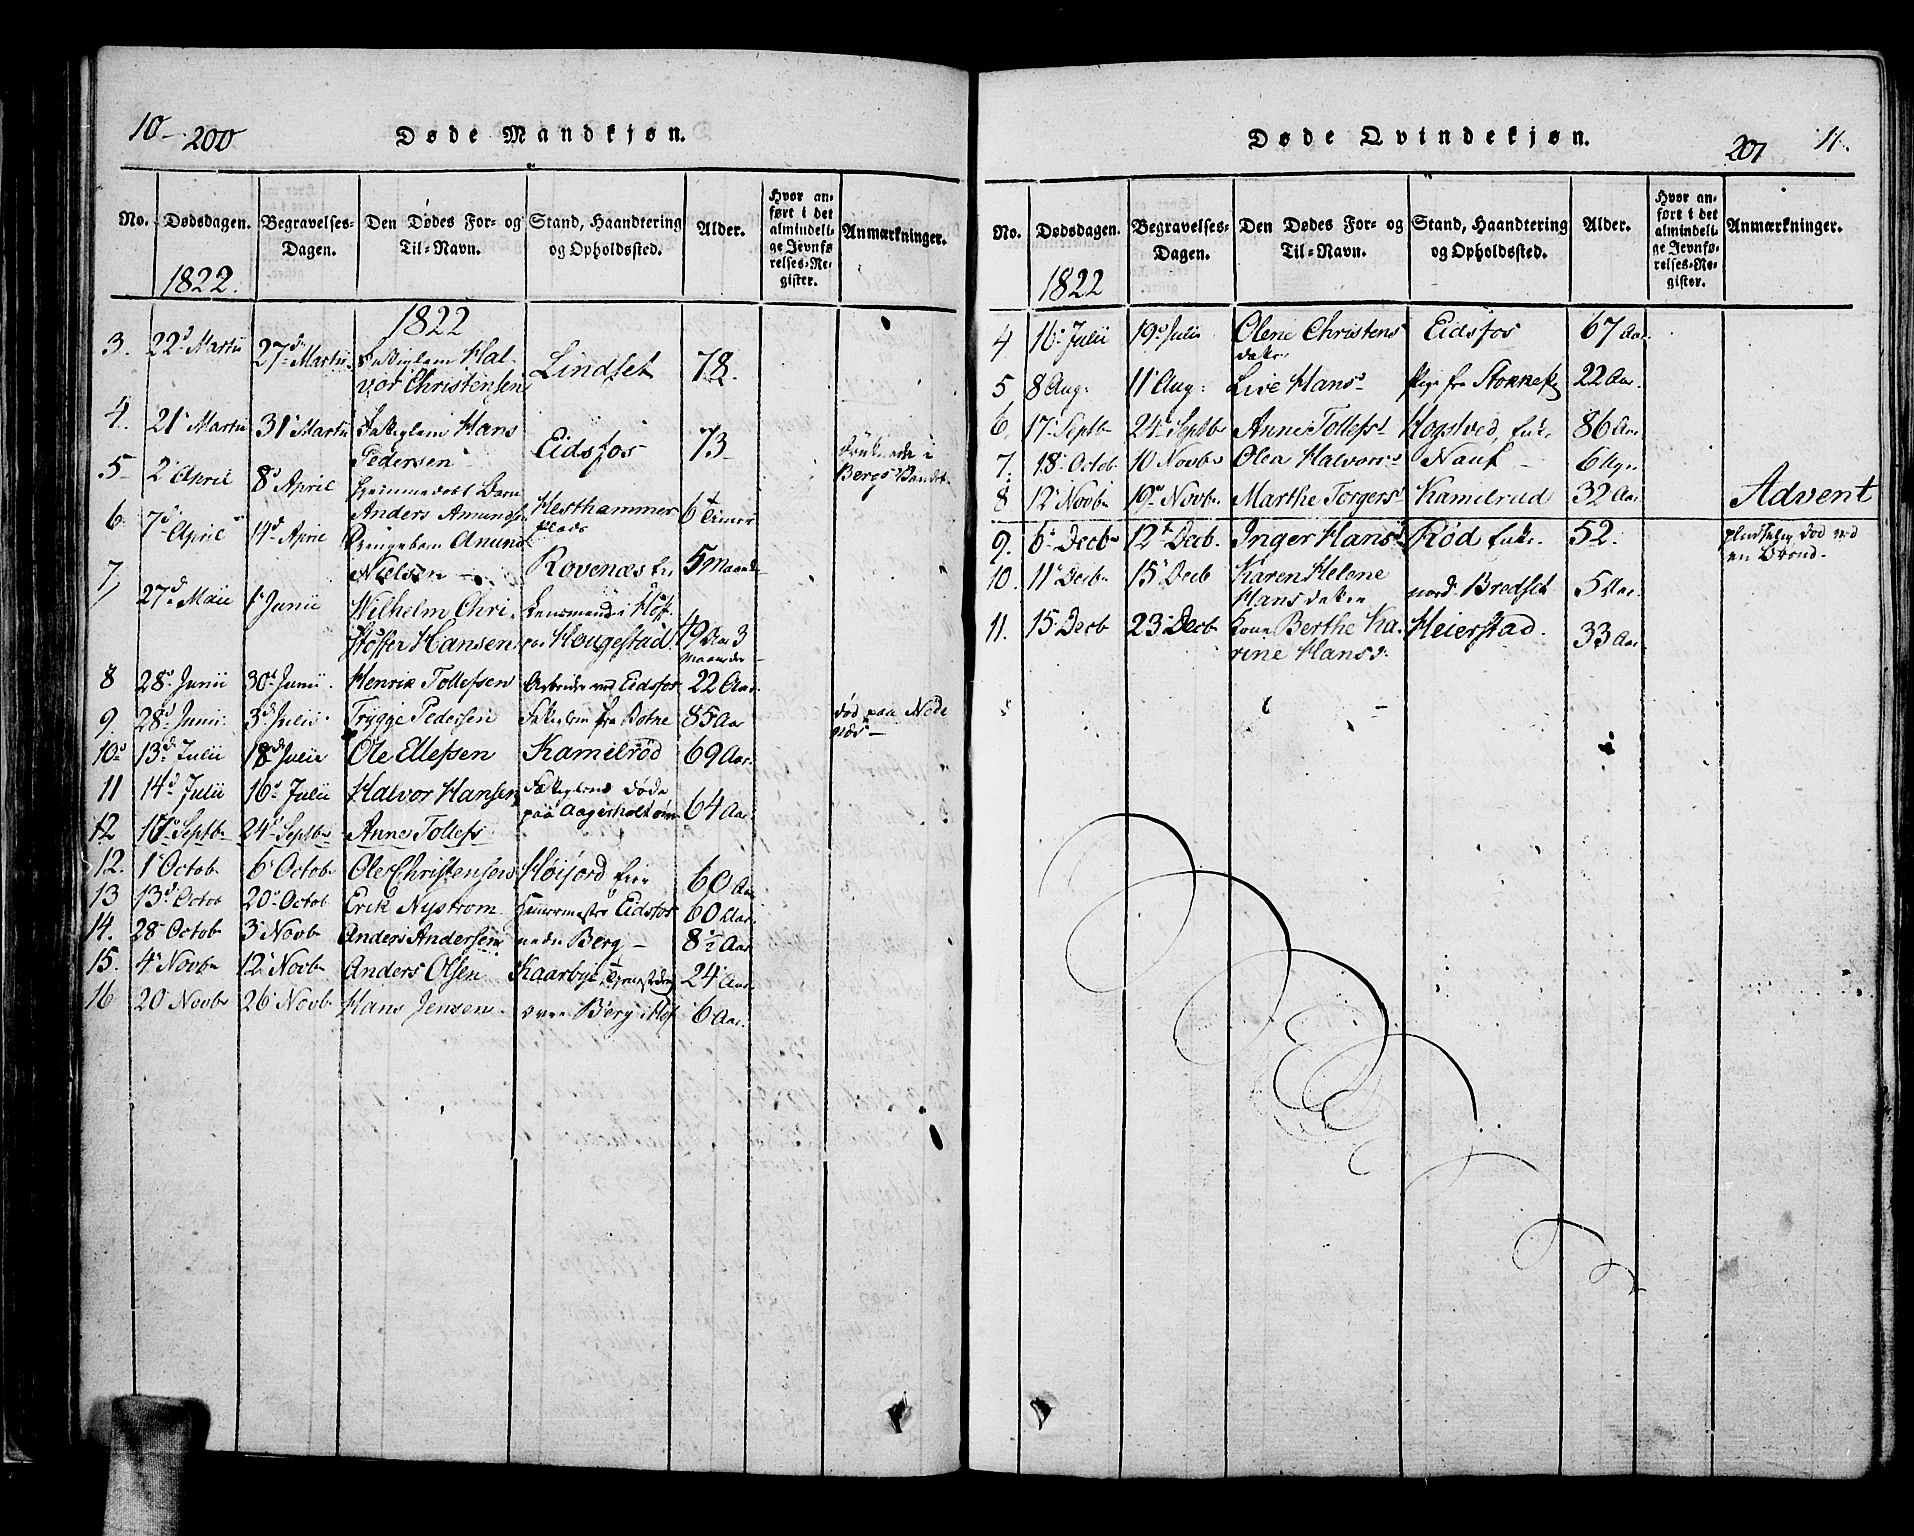 10 - 200
Døde Mandkjøn.
No. Dødsdagen. Begravelses-Dagen. Den Dødes For- og Til-Navn. Stand, Haandtering og Opholdssted. Alder. Hvor anført i det almindelige Jevnførelses-Register. Anmærkninger.
1822.
1822
3. 22d Martii 27d Martii Hal-
vor Christensen Lindset 78.
4. 21 Martii 31 Martii Hans
Pedersen Eidsfos 73
5 2 April 8d April
Anders Amunds. Hesthammer 6
6. 7d April 14d April Amund
Nielsen Rovenæs 5 Maan
7, 27d Maii 1 Junii Wilhelm Chri-
stoffer Hansen Hougestad 49 Aar 3
Maaneder
8 28d Junii 30d Junii. Henrik Tollefsen Arbeider ved Eidsfos 22 Aar.
9. 28d Junii 3d Julii Trygge Pedersen fra Botne 85 Aar død paa Nøde
næs
10d 13d Julii 18d Julii Ole Ellefsen Kamelrød 69 Aar.
11 14d Julii 16d Julii Halvor Hansen døde
paa Aagerholt 64 Aar
12 17 Septbr 24 Septbr Anne Tollefs
12. 1 Octob 6 Octob Ole Christensen Høijord 60 Aar
13 13d Octob 20 Octob Erik Nystrom Eidsfos 60 Aar
14. 28 Octob 3 Novb Anders Andersen nedre Berg 8½ Aar
15. 4 Novb 12 Novb Anders Olsen Kaarbye 24 Aar
16 20 Novb 26 Novb Hans Jensen øvre Berg i Hof 6 Aar.
Døde Qvindekjøn.
201 11.
No. Dødsdagen. Begravelses-Dagen. Den Dødes For- og Til-Navn. Stand, Haandtering og Opholdssted. Alder. Hvor anført i det almindelige Jevnførelses-Register. Anmærkninger.
1822
4 16 Julii 19d Julii Olene Christens Eidsfos 67 Aar
datter
5 8 Aug: 11 Aug: Live Hansd Pige fra 22 Aar.
6. 17 Septb 24 Septb Anne Tollefsd Hogstved, 86 Aar
7. 18 Octob 10 Novb Olea Halvors Nauf 6 Ugr
8 12 Novb 19d Novb Marthe Torgersd Kamelrud 32 Aar Advent
9. 6 Decb 12 Decb. Inger Hansd Rød 52. pludselig død ved
en
10. 11 Decb 15 Decb Karen Helene
Hansdatter nord. Bredset 5 Aar
11. 15 Decb 23 Decb Kone Berthe Ka- Heierstad. 33 Aar
rine Hansd.